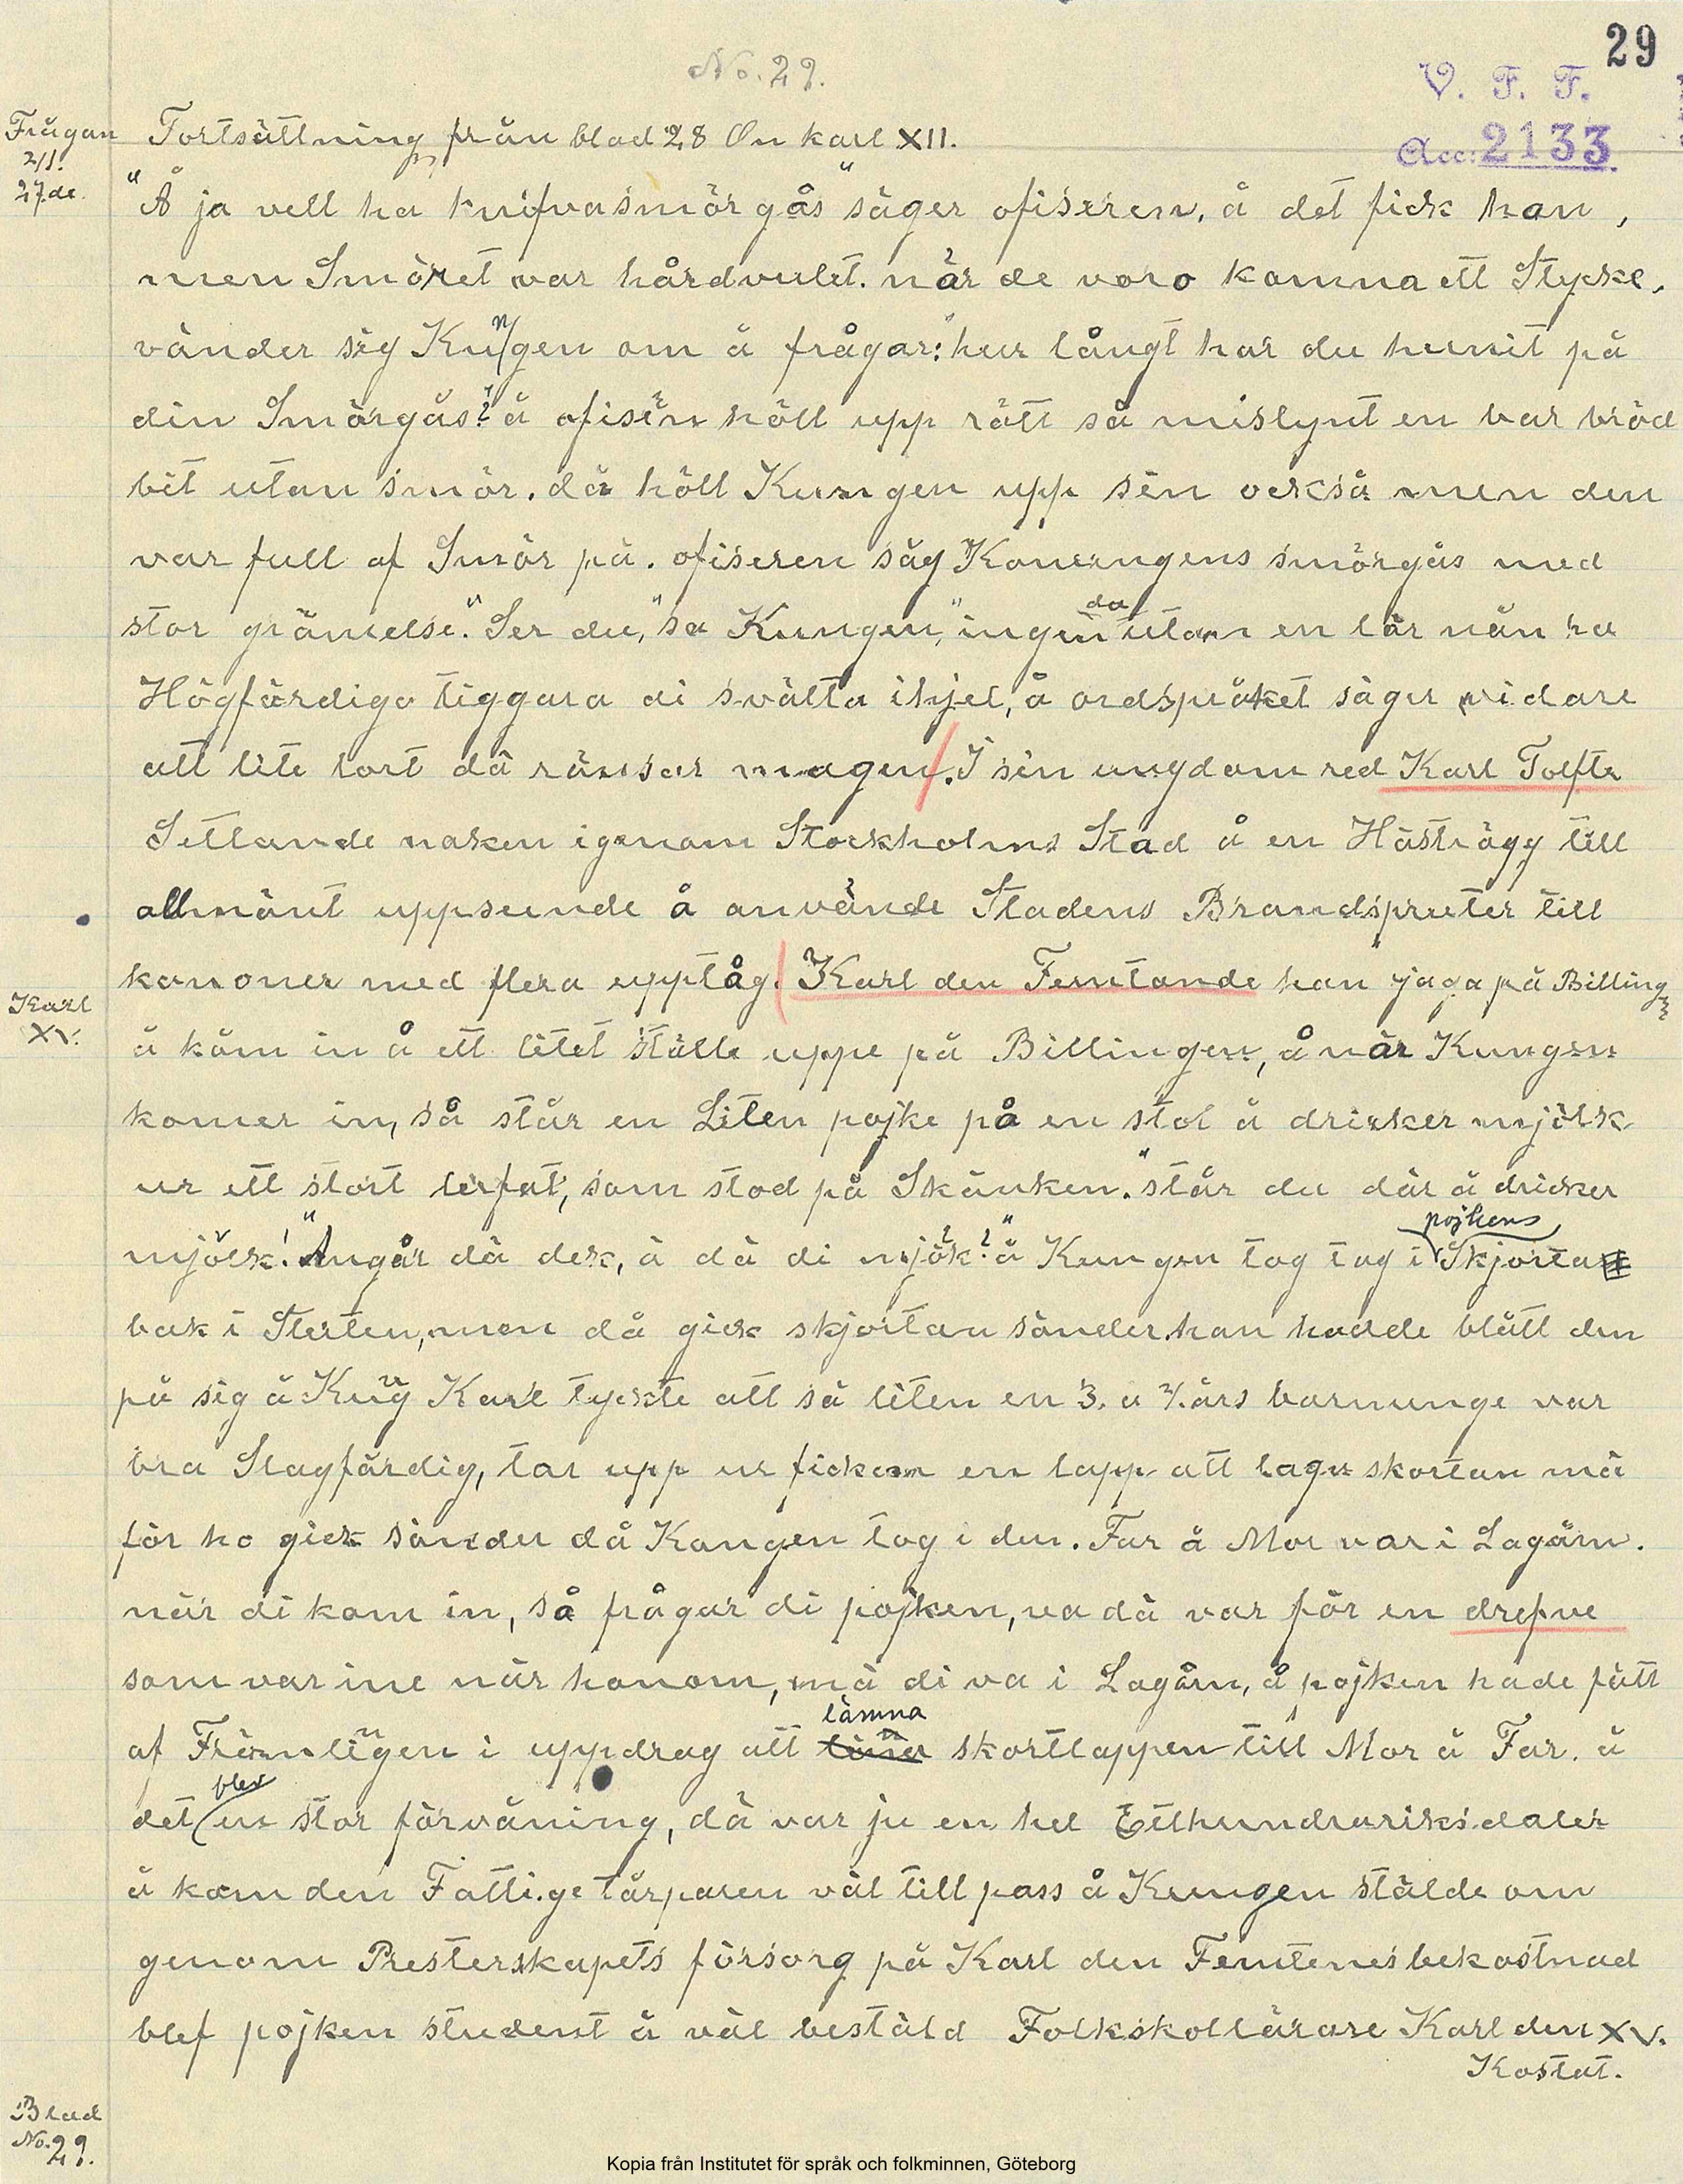 29
No. 29.
V. F. F.
Acc: 2133
Frågan
2/1.
27.de.
Fortsättning från blad 28 Om karl XII.
"Å ja vell ha knifvasmörgås" säger ofiseren, å det fick han,
men Smöret var hårdvulet. när de voro komna ett Stycke,
vänder sig Kungen om å frågar: hur långt har du hunit på
din Smörgås? å ofisern höll upp rätt så mislynt en bar bröd
bit utan smör. då höll Kungen upp sin också men den
var full af Smör på. ofiseren såg Konungens smörgås med
stor grämelse. "Ser du," sa Kungen, "ingenda utan en lär nån ha
Högfärdiga tiggara di svälta ihjel, å ordspråket säger vidare
att lite lort dä ränsar magen. I sin ungdom red Karl Tolfte
Sittande naken igenom Stockholms Stad å en Hästrägg till
allmänt uppseende å använde Stadens Brandspruter till
kanoner med flera upptåg. Karl den Femtande han jaga på Billing
Karl
XV.
å kåm in å ett litet ställe uppe på Billingen, å när Kungen
komer in, så står en Liten pojke på en stol å dricker mjölk
ur ett stort lerfat, som stod på Skänken. "står du där å dricker
mjölk!" Angår dä dek, ä dä di mjök?" å Kungen tog tag i pojkens Skjorta
bak i Sterten, men då gick skjortan sönder. han hadde blått den
på sig å Kung Karl tyckte att så liten en 3. a 4. års barnunge var
bra Slagfärdig, tar upp ur fickan en lapp att laga skortan mä
för ho gick sönder då Kongen tog i den. Far å Mor var i Lagårn.
när di kom in, så frågar di pojken, va dä var för en drefve
som var ine när honom, mä di va i Lagårn, å pojken hade fått
af Främligen i uppdrag att lämna skortlappen till Mor å Far. å
det blev en stor förvåning, dä var ju en hel Etthundrariksdaler
å kom den Fattige tårparen väl till pass å Kungen stälde om
genom Presterskapets försorg på Karl den Femtenes bekostnad
blef pojken student å väl bestäld Folkskollärare Karl den XV.
Kostat.
Blad
No. 29.
Kopia från Institutet för språk och folkminnen, Göteborg